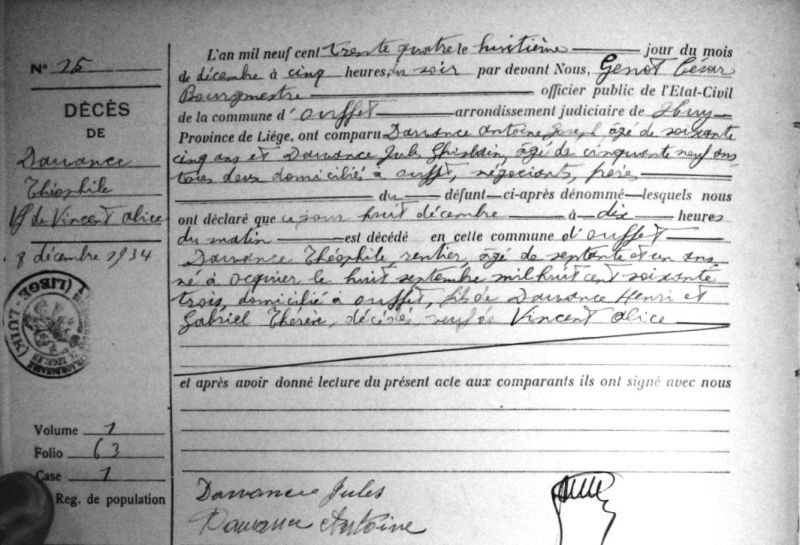 N° 15
DÉCÈS
DE
Dawance
Théophile
Vf de Vincent Alice
8 décembre 1934
Volume 1
Folio 63
Case 1
Reg. de population
L'an mil neuf cent trente quatre le huitième jour du mois
de décembre à cinq heures, du soir par devant Nous, Genot César
Bourgmestre officier public de l'Etat-Civil
de la commune d'Ouffet arrondissement judiciaire de Huy
Province de Liége, ont comparu Dawance Antoine Joseph âgé de soixante
cinq ans et Dawance Jules Ghislain, âgé de cinquante neuf ans
tous deux domiciliés à Ouffet, négociants, frères
du défunt-ci-après dénommé-lesquels nous
ont déclaré que ce jour huit décembre à dix heures
du matin est décédé en cette commune d'Ouffet
Dawance Théophile rentier, âgé de septante et un ans
né à Ocquier le huit septembre mil huit cent soixante
trois, domicilié à Ouffet, fils de Dawance Henri et
Gabriel Thérèse, décédés veuf de Vincent Alice
et après avoir donné lecture du présent acte aux comparants ils ont signé avec nous
Dawance Jules
Dawance Antoine